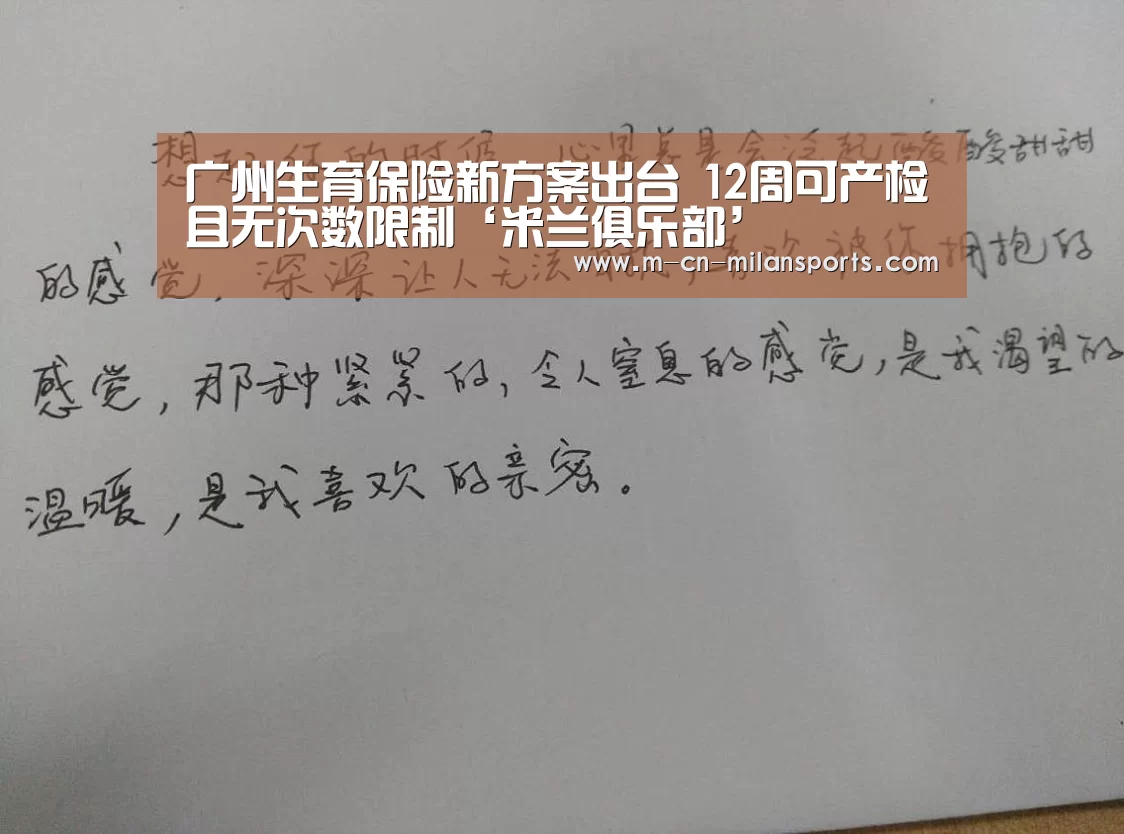 想起你的时候,心里总是会泛起酸酸甜甜
广州生育保险新方案出台 12周可产检
且无次数限制‘米兰俱乐部’
www.m-cn-milansports.com
的感觉,深深让人无法 喜欢被你拥抱的
感觉,那种紧紧的,令人窒息的感觉,是我渴望的
温暖,是我喜欢的亲密。